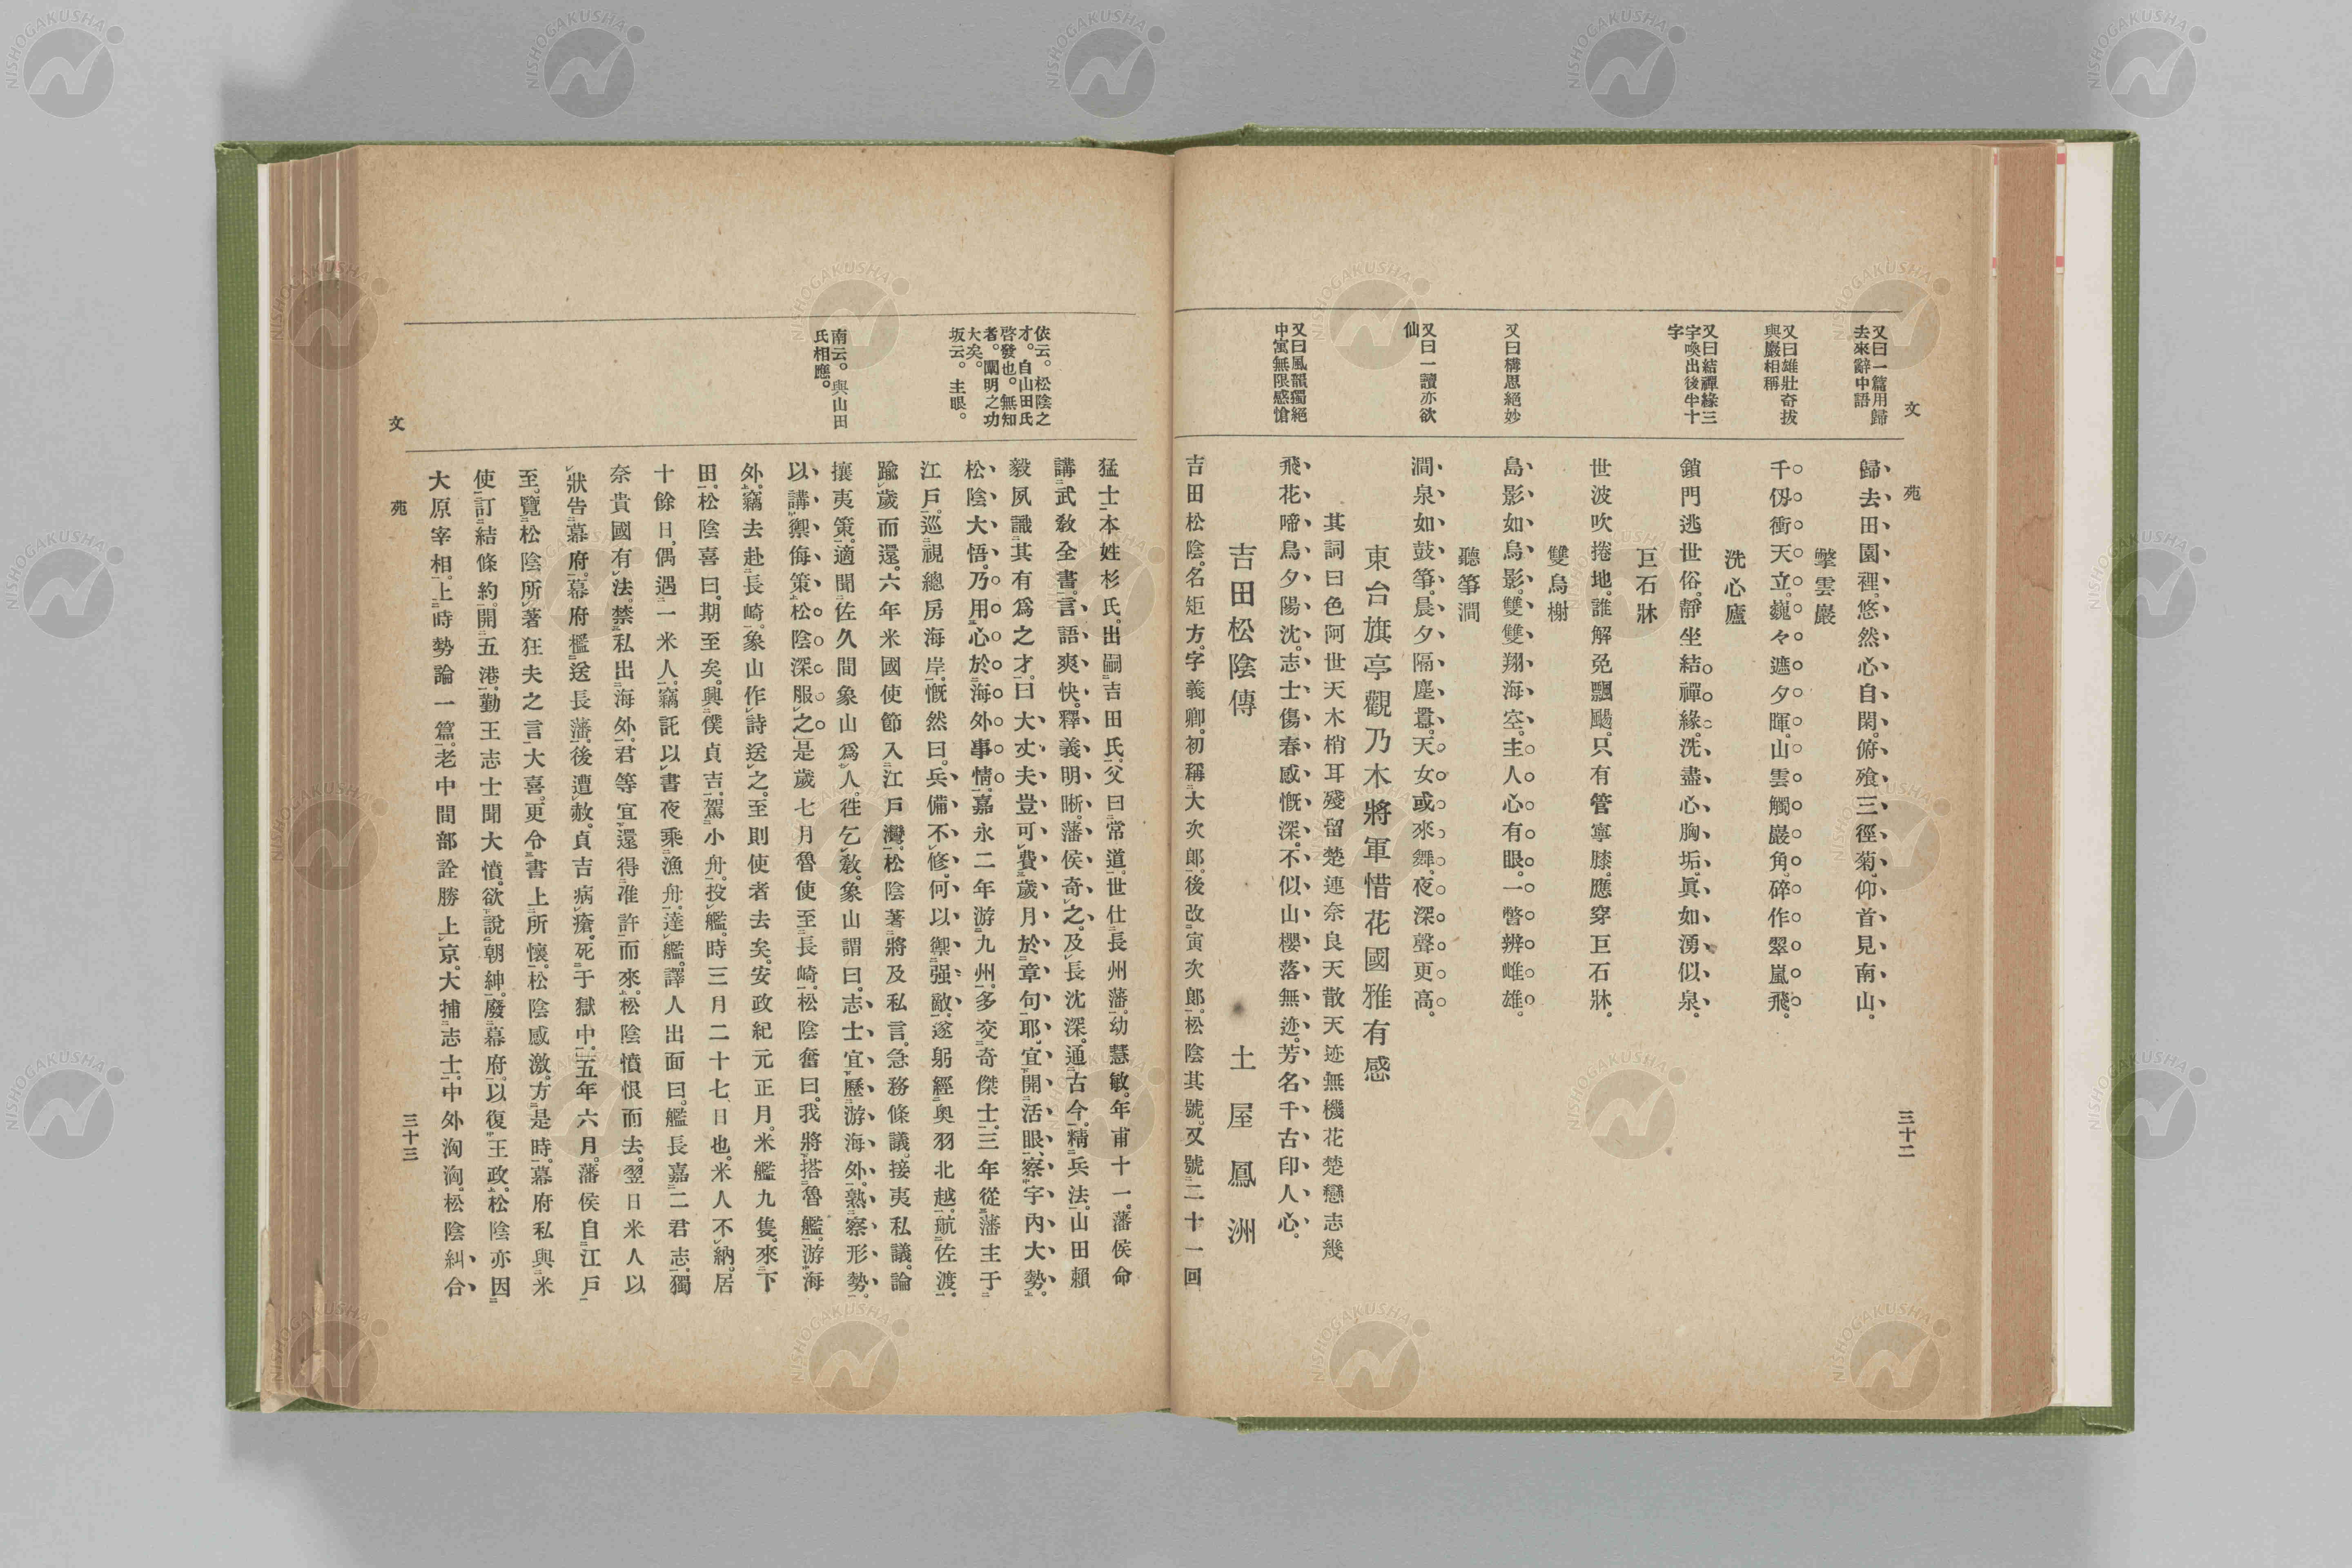 文苑
三十二
又曰一篇用歸
去來辭中語
又曰雄壯奇拔
與巖相稱
又曰結禪緣三
字喚出後半十
字
又曰構思絕妙
又曰一讀亦欲
仙
又曰風韻獨絕
中寓無限感愴
歸去田園裡。悠然心自閑。俯飡三徑菊。仰首見南山。
擎雲巖
千仭衝天立。巍々遮夕暉。山雲觸巖角。碎作翠嵐飛。
洗心廬
鎖門逃世俗。靜坐結禪緣。洗盡心胸垢。眞如湧似泉。
巨石牀
世波吹捲地。誰解免飄颺。只有管寧膝。應穿巨石牀。
雙烏榭
島影如烏影。雙雙翔海空。主人心有眼。一瞥辨雌雄。
聽箏澗
澗泉如鼓箏。晨夕隔塵囂。天女或來舞。夜深聲更高。
東台旗亭觀乃木將軍惜花國雅有感
其詞曰色阿世天木梢耳殘留楚連奈良天散天迹無機花楚戀志幾
飛花啼鳥夕陽沈。志士傷春感慨深。不似山櫻落無迹。芳名千古印人心。
吉田松陰傳
土屋鳳洲
吉田松陰。名矩方。字義卿。初稱大次郎。後改寅次郎。松陰其號。又號二十一回
依云。松陰之
才。自山田氏
啓發也。無知
者。闡明之功
大矣。
坂云。主眼。
南云。與山田
氏相應。
猛士。本姓杉氏。出嗣吉田氏。父曰常道。世仕長州藩。幼慧敏。年甫十一。藩侯命
講武敎全書。言語爽快。釋義明晰。藩侯奇之。及長沈深。通古今。精兵法。山田賴
毅夙識其有爲之才。曰大丈夫豈可費歲月於章句耶。宜開活眼、察宇內大勢。
松陰大悟。乃用心於海外事情。嘉永二年游九州。多交奇傑士。三年從藩主于
江戶。巡視總房海岸。慨然曰。兵備不修。何以禦强敵。遂躬經奧羽北越。航佐渡。
踰歲而還。六年米國使節入江戶灣。松陰著將及私言。急務條議。接夷私議。論
攘夷策。適聞佐久間象山爲人。往乞敎。象山謂曰。志士宜歷游海外。熟察形勢。
以講禦侮策。松陰深服之」是歲七月魯使至長崎。松陰奮曰。我將搭魯艦。游海
外。竊去赴長崎。象山作詩送之。至則使者去矣。安政紀元正月。米艦九隻。來下
田。松陰喜曰。期至矣。與僕貞吉。駕小舟。投艦。時三月二十七日也。米人不納。居
十餘日、偶遇一米人。竊託以書夜乘漁舟。達艦。譯人出面曰。艦長嘉二君志。獨
奈貴國有法。禁私出海外。君等宜還得准許而來。松陰憤恨而去。翌日米人以
狀告幕府。幕府檻送長藩。後遭赦。貞吉病瘡。死于獄中。五年六月。藩侯自江戶
至。覽松陰所著狂夫之言。大喜。更令書上所懷。松陰感激。方是時。幕府私與米
使訂結條約。開五港。勤王志士聞大憤。欲說朝紳。廢幕府。以復王政。松陰亦因
大原宰相。上時勢論一篇。老中間部詮勝上京。大捕志士。中外洶洶。松陰糾合
文苑
三十三